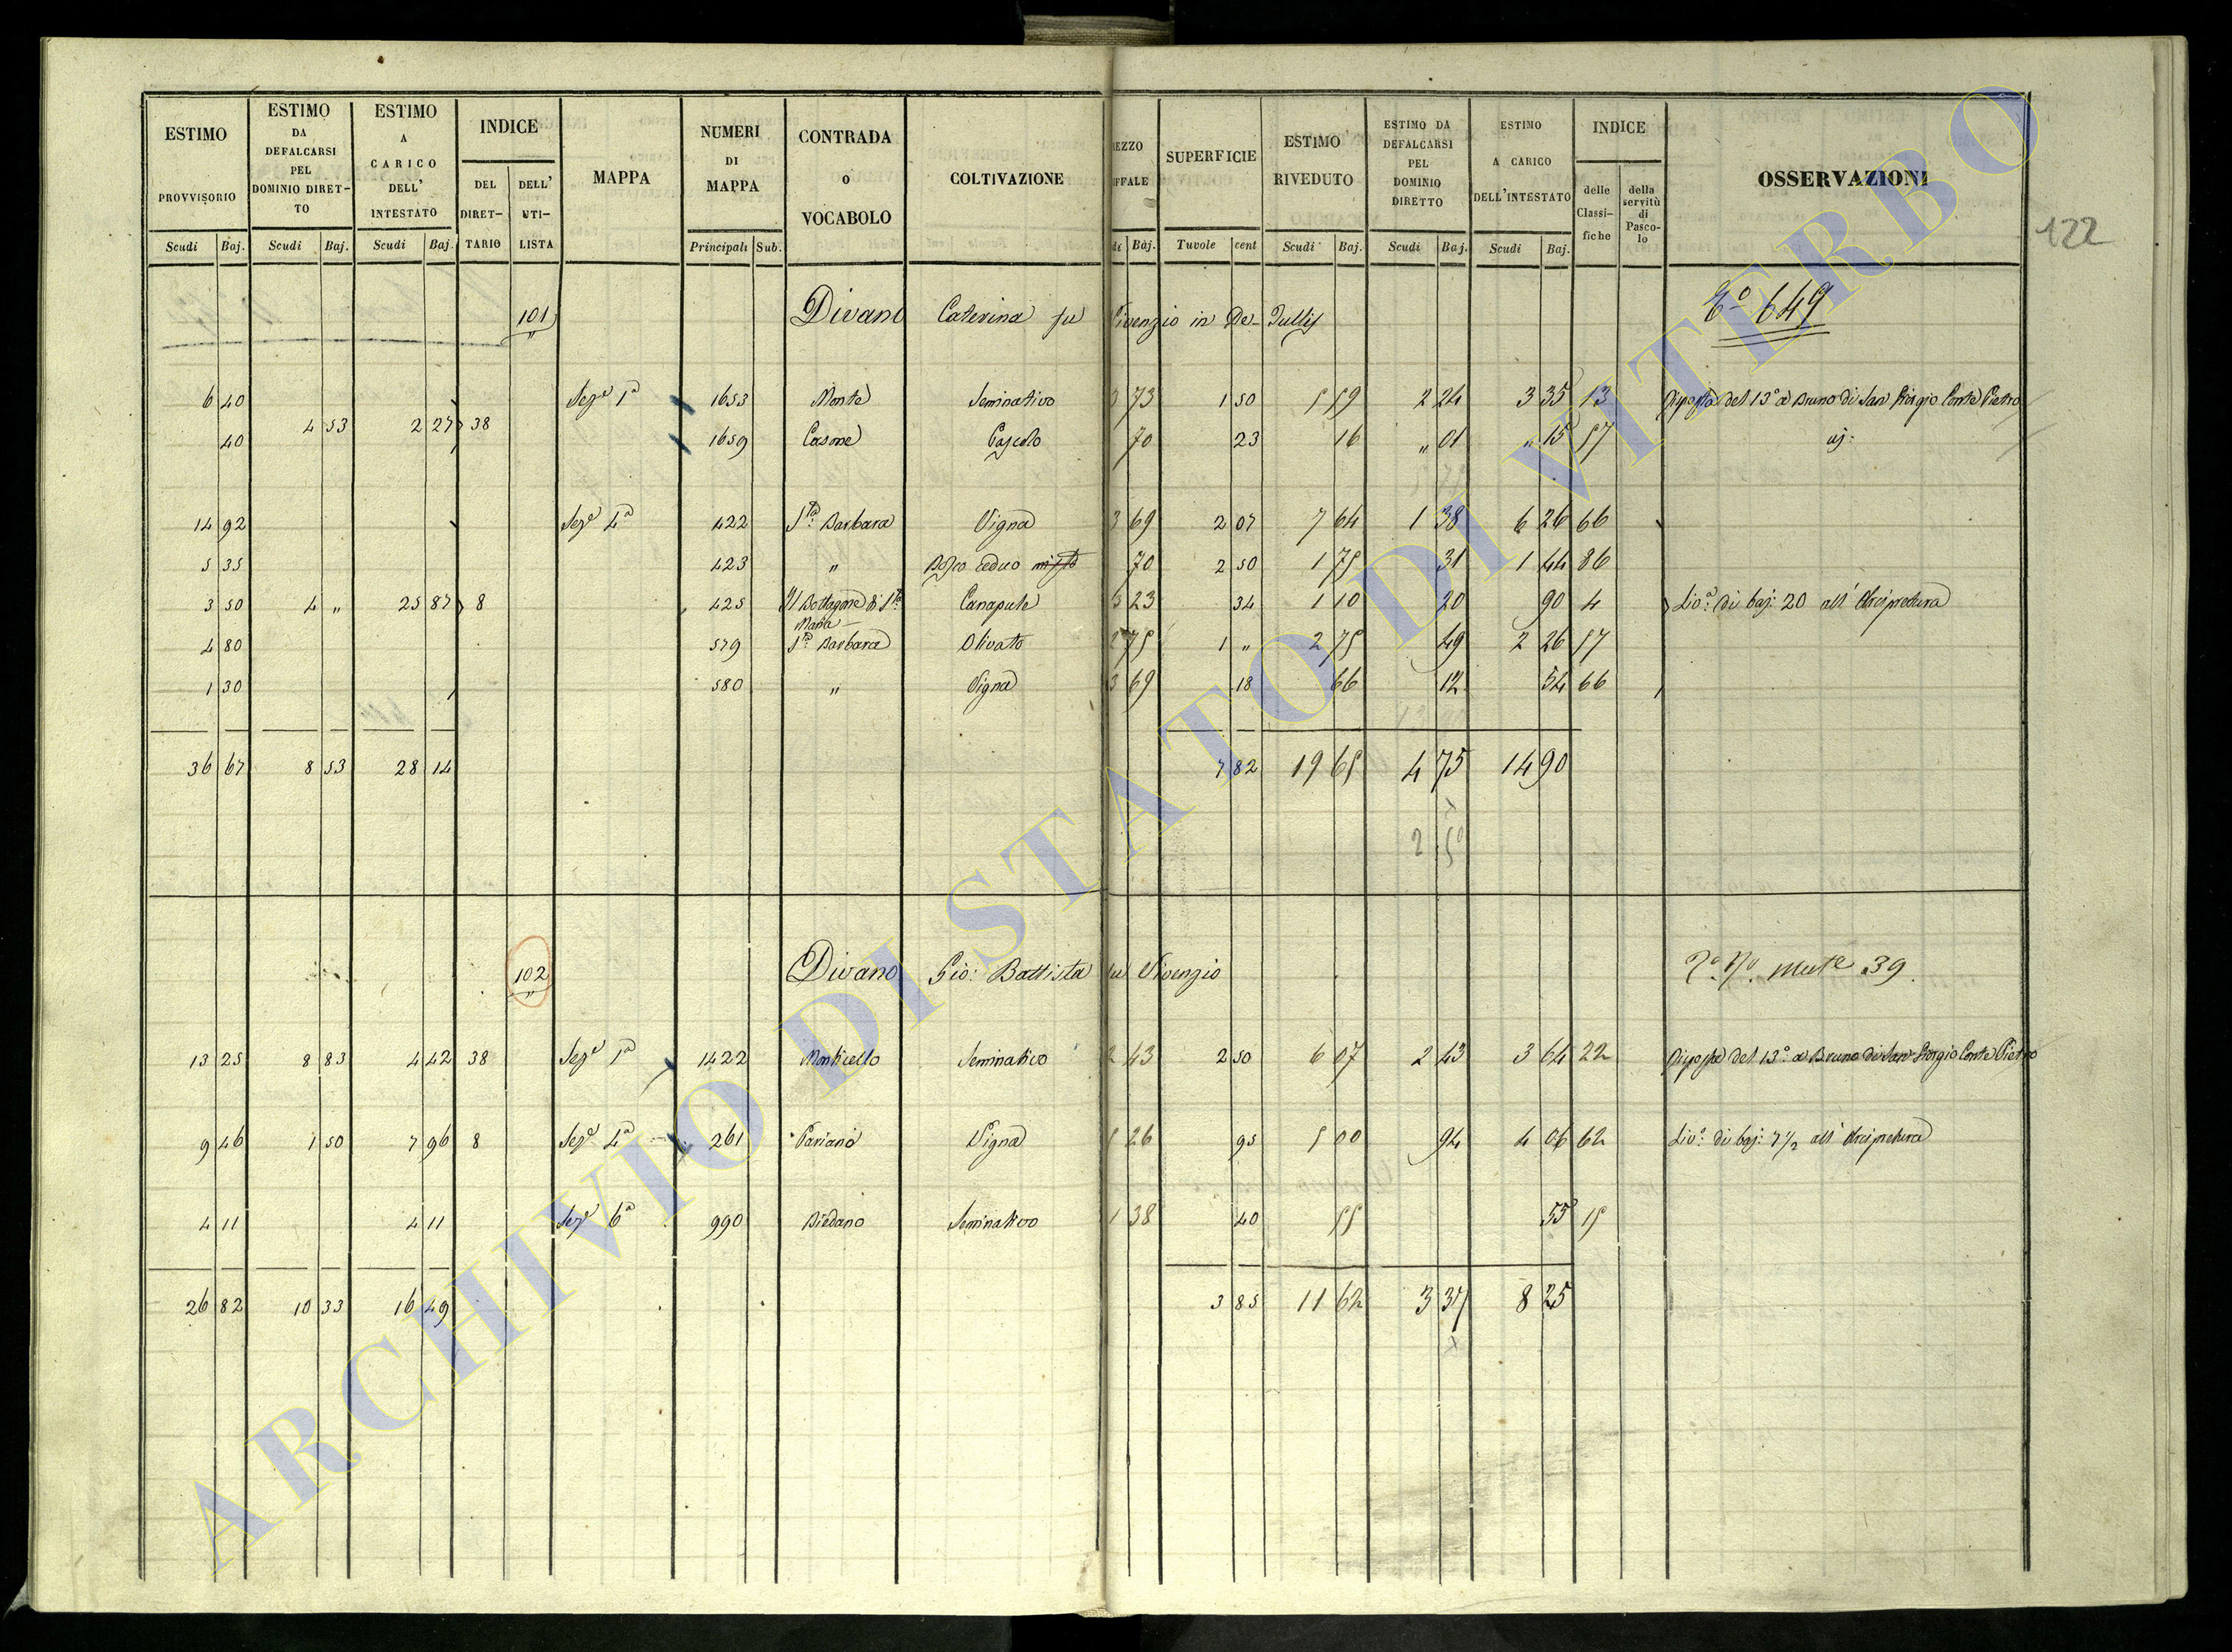 ESTIMO PROVVISORIO Scudi Baj.
ESTIMO DA DEFALCARSI PEL DOMINIO DIRET-TO Scudi Baj.
ESTIMO A CARICO DELL' INTESTATO Scudi Baj.
INDICE DEL DIRET-TARIO DELL' UTI-LISTA
MAPPA
NUMERI DI MAPPA Principali Sub.
CONTRADA O VOCABOLO
COLTIVAZIONE
EZZO FFALE di Baj.
SUPERFICIE Tavole cent
ESTIMO RIVEDUTO Scudi Baj.
ESTIMO DA DEFALCARSI PEL DOMINIO DIRETTO Scudi Baj.
ESTIMO A CARICO DELL'INTESTATO Scudi Baj.
INDICE delle Classi-fiche della servitù di Pasco-lo
OSSERVAZIONI
122
101 Divano Caterina fu Vivenzio in De-Tullis 649
6 40 Sez.e 1a 1653 Monte Seminativo 3 73 1 50 5 59 2 24 3 35 13 Risposta del 13o a Bruno di San Giorgio Conte Pietro
4 53 2 27 38
40 1659 Casone Pascolo 70 23 16 " 01 " 15 57
14 92 Sez.e 4a 422 Sta Barbara Vigna 3 69 2 07 7 64 1 38 6 26 66
5 35 423 " Bosco ceduo misto 70 2 50 1 75 31 1 44 86
3 50 4 " 25 87 8 425 Il Bottagone di Sta Maria Canapule 3 23 34 1 10 20 90 4 Livo: di baj: 20 all' Arcipretura
4 80 579 Sta Barbara Olivato 2 75 1 " 2 75 49 2 26 57
1 30 580 " Vigna 3 69 18 66 12 54 66
36 67 8 53 28 14 7 82 19 65 4 75 14 90
2 50
102 Divano Gio: Battista fu Vivenzio 39
13 25 8 83 4 42 38 Sez.e 1a 1422 Monticello Seminativo 2 43 2 50 6 07 2 43 3 64 22 Risposta del 13o a Bruno di San Giorgio Conte Pietro
9 46 1 50 7 96 8 Sez.e 4a 261 Pariano Vigna 5 26 95 5 00 94 4 06 62 Livo: di baj: 7 1/2 all' Arcipretura
4 11 4 11 Sez.e 6a 990 Biedano Seminativo 1 38 40 55 55 15
26 82 10 33 16 49 3 85 11 62 3 37 8 25
ARCHIVIO DI STATO DI VITERBO